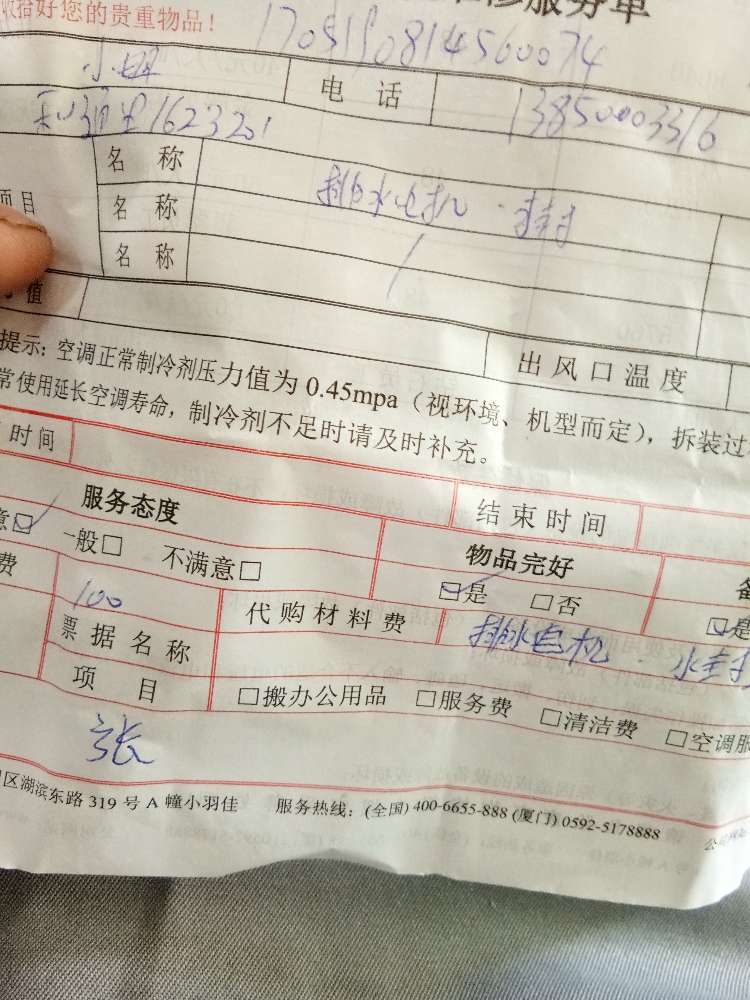 收拾好您的贵重物品!
修服务单
小姐
电 话
13850003316
162320
名 称
排水电机
项目
名 称
名 称
/
值
出风口温度
提示: 空调正常制冷剂压力值为 0.45mpa（视环境、机型而定），拆装过
常使用延长空调寿命，制冷剂不足时请及时补充。
时间
结束时间
服务态度
物品完好
意☑ 一般□ 不满意□
☑是 □否
☑是
费
100
代购材料费
排水电机
票据名称
项 目
□搬办公用品 □服务费 □清洁费 □空调服
张
区湖滨东路 319 号 A 幢小羽佳 服务热线：(全国) 400-6655-888 (厦门) 0592-5178888